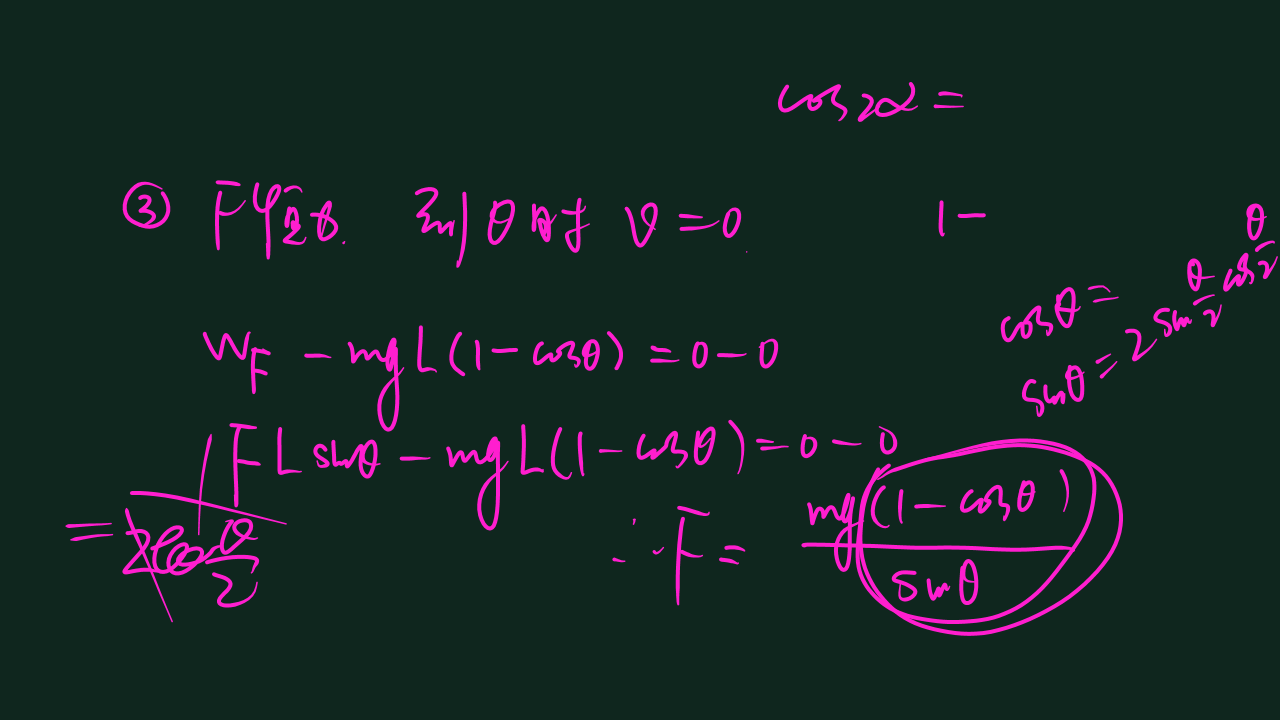 cos2α =
③ F恒力. 到θ时 v=0.
1-
cosθ=
sinθ=2sin\frac{θ}{2}cos\frac{θ}{2}
W_F - mgL(1-cosθ) = 0-0
FLsinθ - mgL(1-cosθ) = 0-0
∴F = \frac{mg(1-cosθ)}{sinθ}